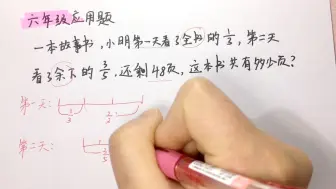 六年级应用题
一本故事书,小明第一天看了全书的1/3,第二天
看了余下的3/5,还剩48页,这本书共有多少页?
第一天:
1/3
第二天: